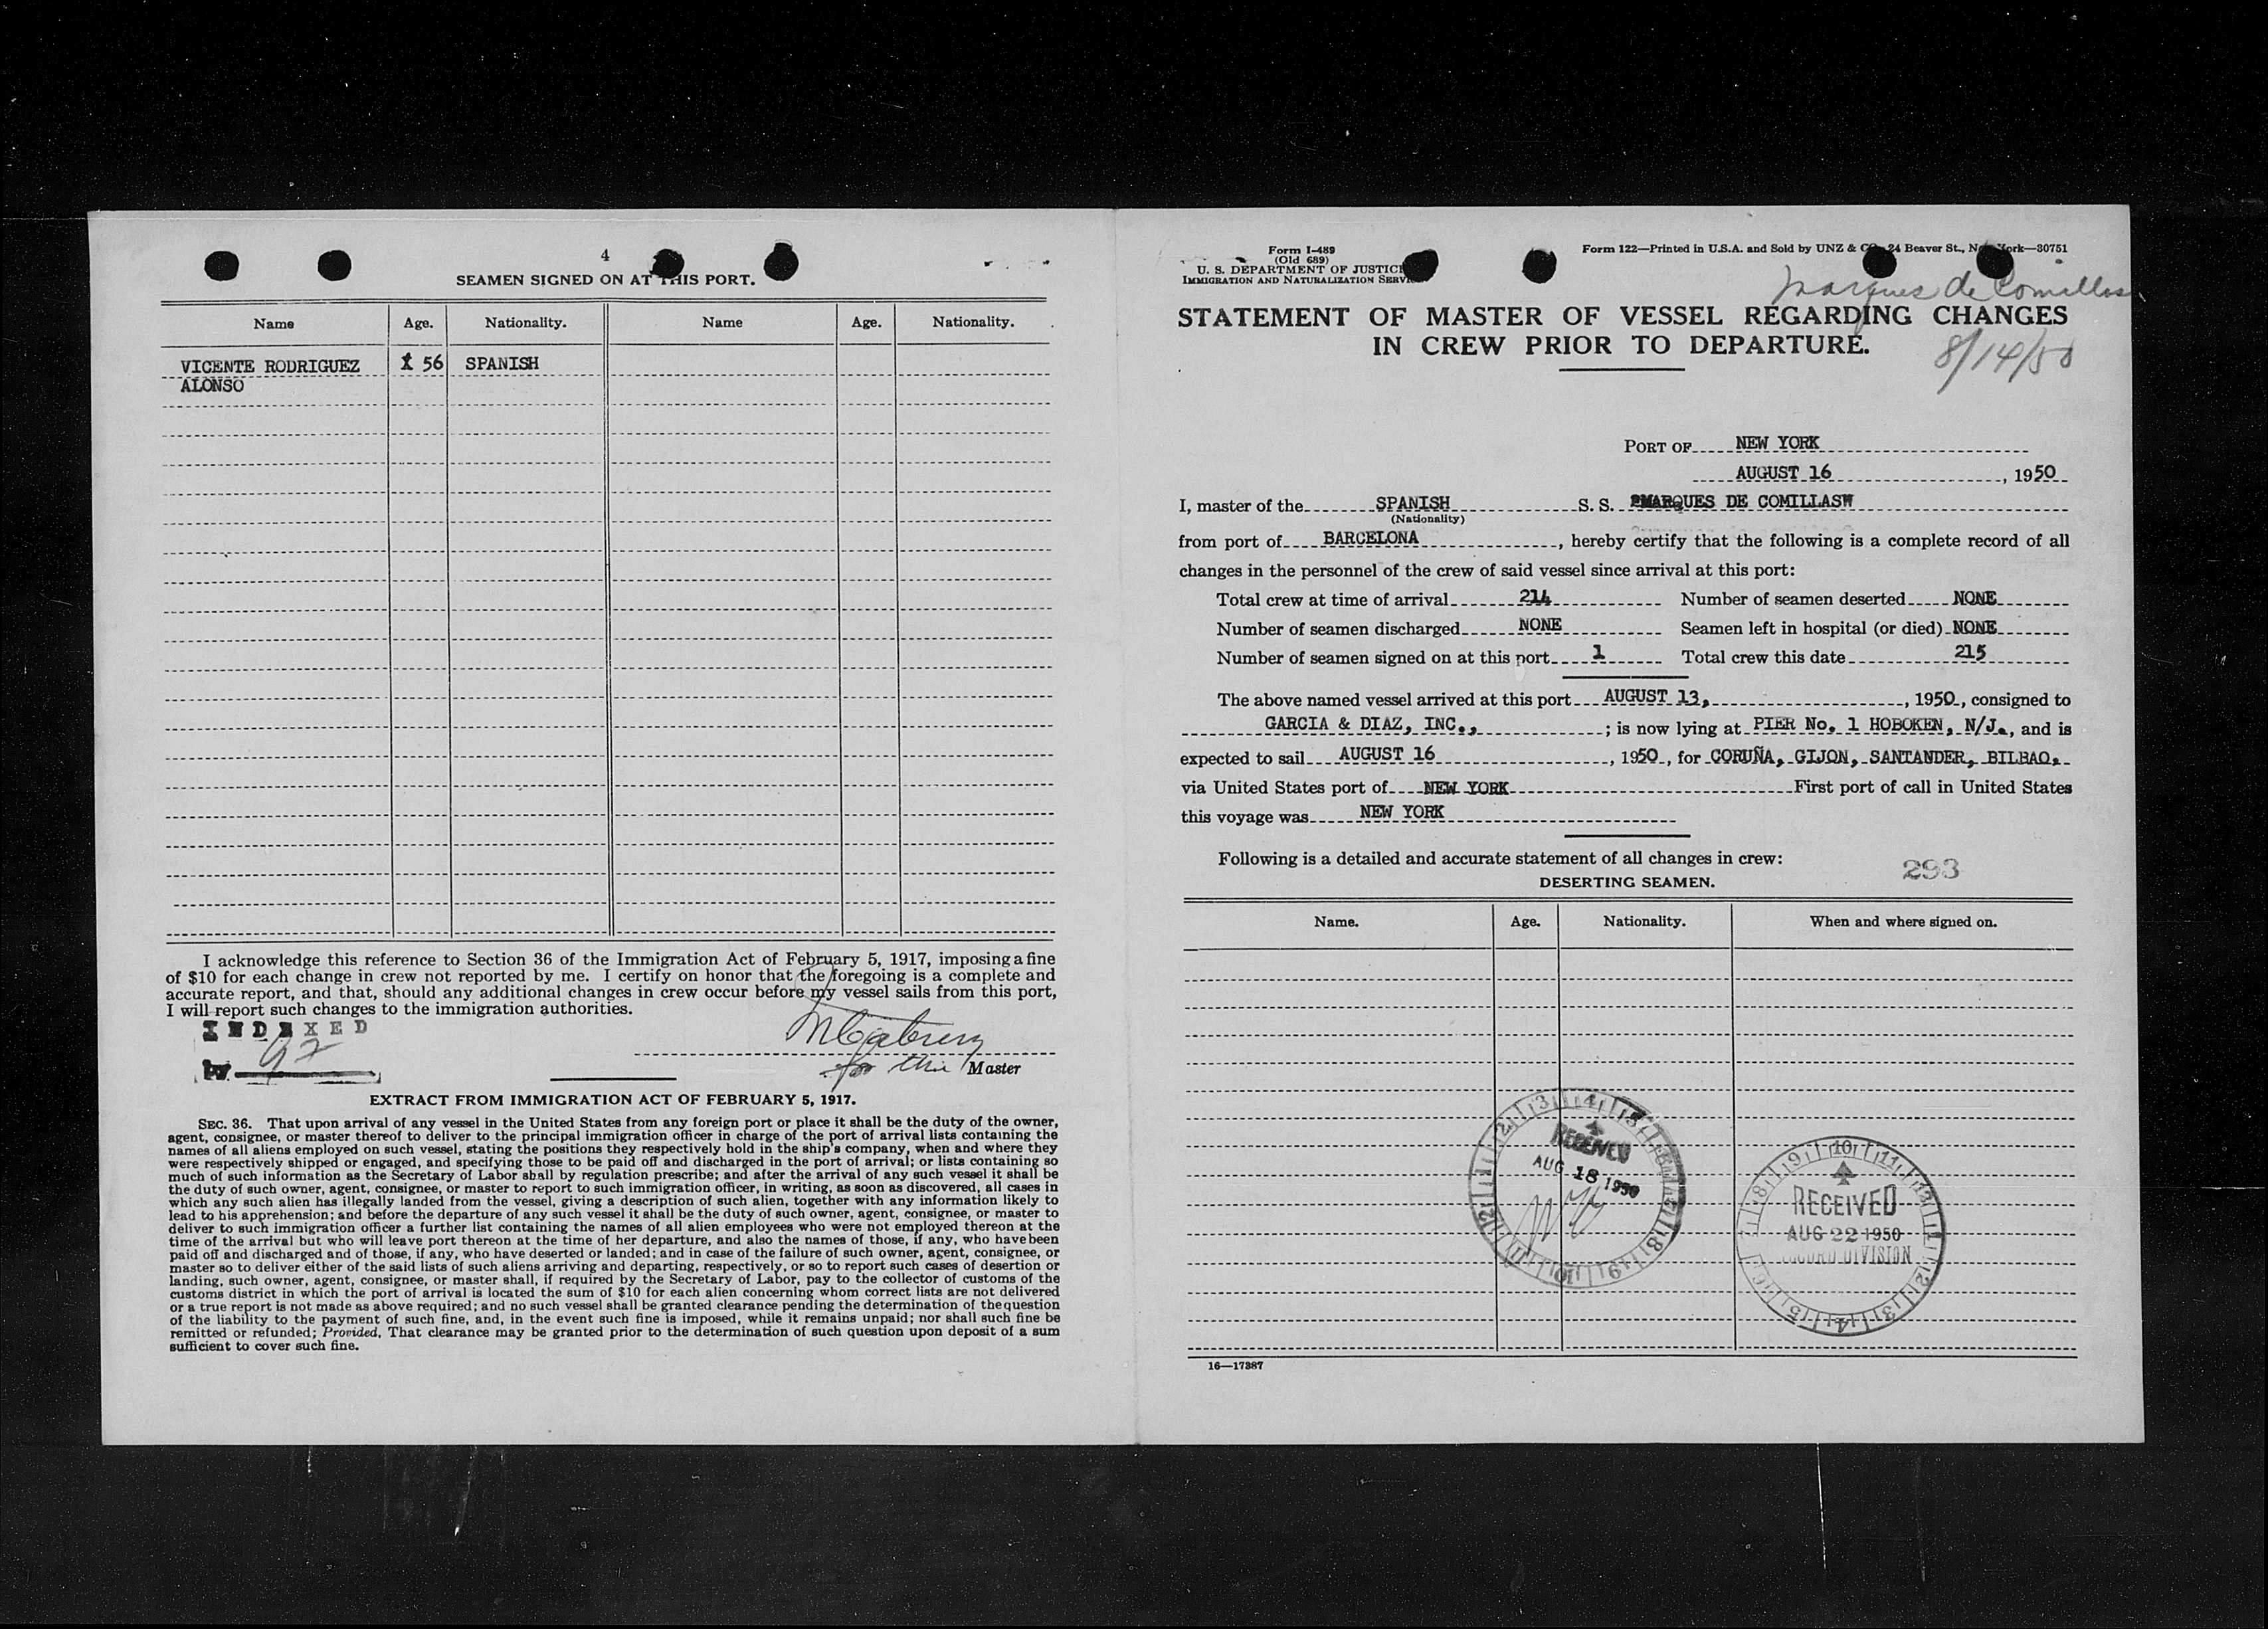 4
SEAMEN SIGNED ON AT THIS PORT.
Name Age. Nationality. Name Age. Nationality.
VICENTE RODRIGUEZ 56 SPANISH
ALONSO
I acknowledge this reference to Section 36 of the Immigration Act of February 5, 1917, imposing a fine
of $10 for each change in crew not reported by me. I certify on honor that the foregoing is a complete and
accurate report, and that, should any additional changes in crew occur before my vessel sails from this port,
I will report such changes to the immigration authorities.
INDEXED
by
for the Master
EXTRACT FROM IMMIGRATION ACT OF FEBRUARY 5, 1917.
SEC. 36. That upon arrival of any vessel in the United States from any foreign port or place it shall be the duty of the owner,
agent, consignee, or master thereof to deliver to the principal immigration officer in charge of the port of arrival lists containing the
names of all aliens employed on such vessel, stating the positions they respectively hold in the ship's company, when and where they
were respectively shipped or engaged, and specifying those to be paid off and discharged in the port of arrival; or lists containing so
much of such information as the Secretary of Labor shall by regulation prescribe; and after the arrival of any such vessel it shall be
the duty of such owner, agent, consignee, or master to report to such immigration officer, in writing, as soon as discovered, all cases in
which any such alien has illegally landed from the vessel, giving a description of such alien, together with any information likely to
lead to his apprehension; and before the departure of any such vessel it shall be the duty of such owner, agent, consignee, or master to
deliver to such immigration officer a further list containing the names of all alien employees who were not employed thereon at the
time of the arrival but who will leave port thereon at the time of her departure, and also the names of those, if any, who have been
paid off and discharged and of those, if any, who have deserted or landed; and in case of the failure of such owner, agent, consignee, or
master so to deliver either of the said lists of such aliens arriving and departing, respectively, or so to report such cases of desertion or
landing, such owner, agent, consignee, or master shall, if required by the Secretary of Labor, pay to the collector of customs of the
customs district in which the port of arrival is located the sum of $10 for each alien concerning whom correct lists are not delivered
or a true report is not made as above required; and no such vessel shall be granted clearance pending the determination of the question
of the liability to the payment of such fine, and, in the event such fine is imposed, while it remains unpaid; nor shall such fine be
remitted or refunded; Provided, That clearance may be granted prior to the determination of such question upon deposit of a sum
sufficient to cover such fine.
Form I-489
(Old 689)
U. S. DEPARTMENT OF JUSTICE
IMMIGRATION AND NATURALIZATION SERVICE
Form 122—Printed in U.S.A. and Sold by UNZ & CO., 24 Beaver St., New York—30751
Marques de Comillas
STATEMENT OF MASTER OF VESSEL REGARDING CHANGES
IN CREW PRIOR TO DEPARTURE.
8/14/50
PORT OF NEW YORK
AUGUST 16, 1950
I, master of the SPANISH S. S. MARQUES DE COMILLASW
(Nationality)
from port of BARCELONA, hereby certify that the following is a complete record of all
changes in the personnel of the crew of said vessel since arrival at this port:
Total crew at time of arrival 214 Number of seamen deserted NONE
Number of seamen discharged NONE Seamen left in hospital (or died) NONE
Number of seamen signed on at this port 1 Total crew this date 215
The above named vessel arrived at this port AUGUST 13, , 1950, consigned to
GARCIA & DIAZ, INC., ; is now lying at PIER No. 1 HOBOKEN, N/J., and is
expected to sail AUGUST 16, 1950, for CORUÑA, GIJON, SANTANDER, BILBAO.
via United States port of NEW YORK First port of call in United States
this voyage was NEW YORK
Following is a detailed and accurate statement of all changes in crew:
293
DESERTING SEAMEN.
Name. Age. Nationality. When and where signed on.
RECEIVED
AUG 18 1950
RECEIVED
AUG 22 1950
RECORD DIVISION
16—17387